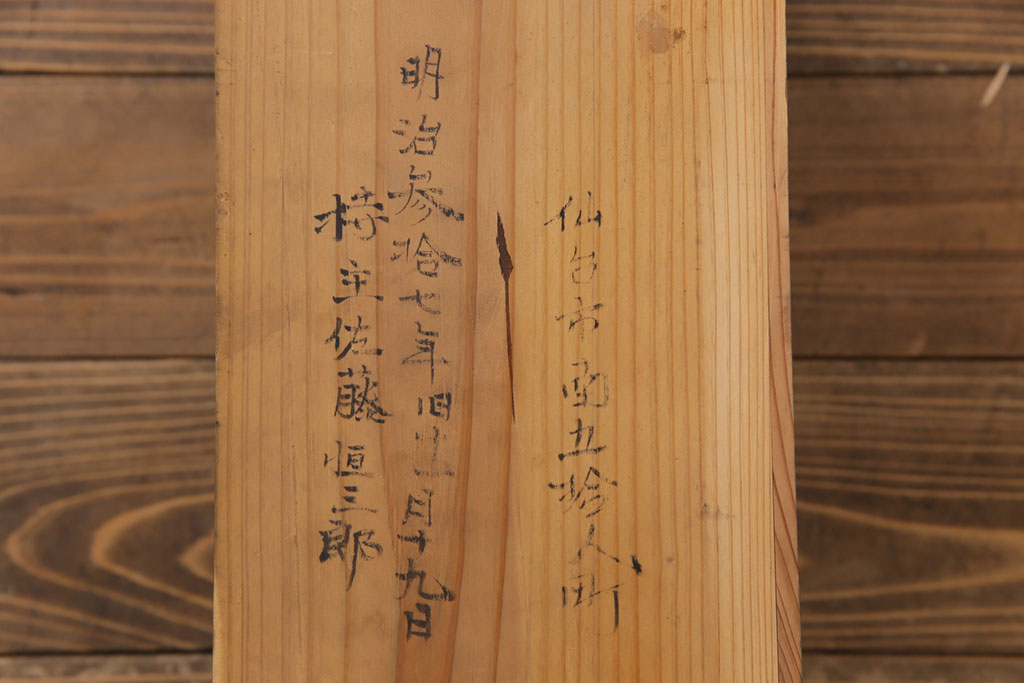 仙台市南五拾人町
明治参拾七年旧十二月十九日
持主佐藤恒三郎